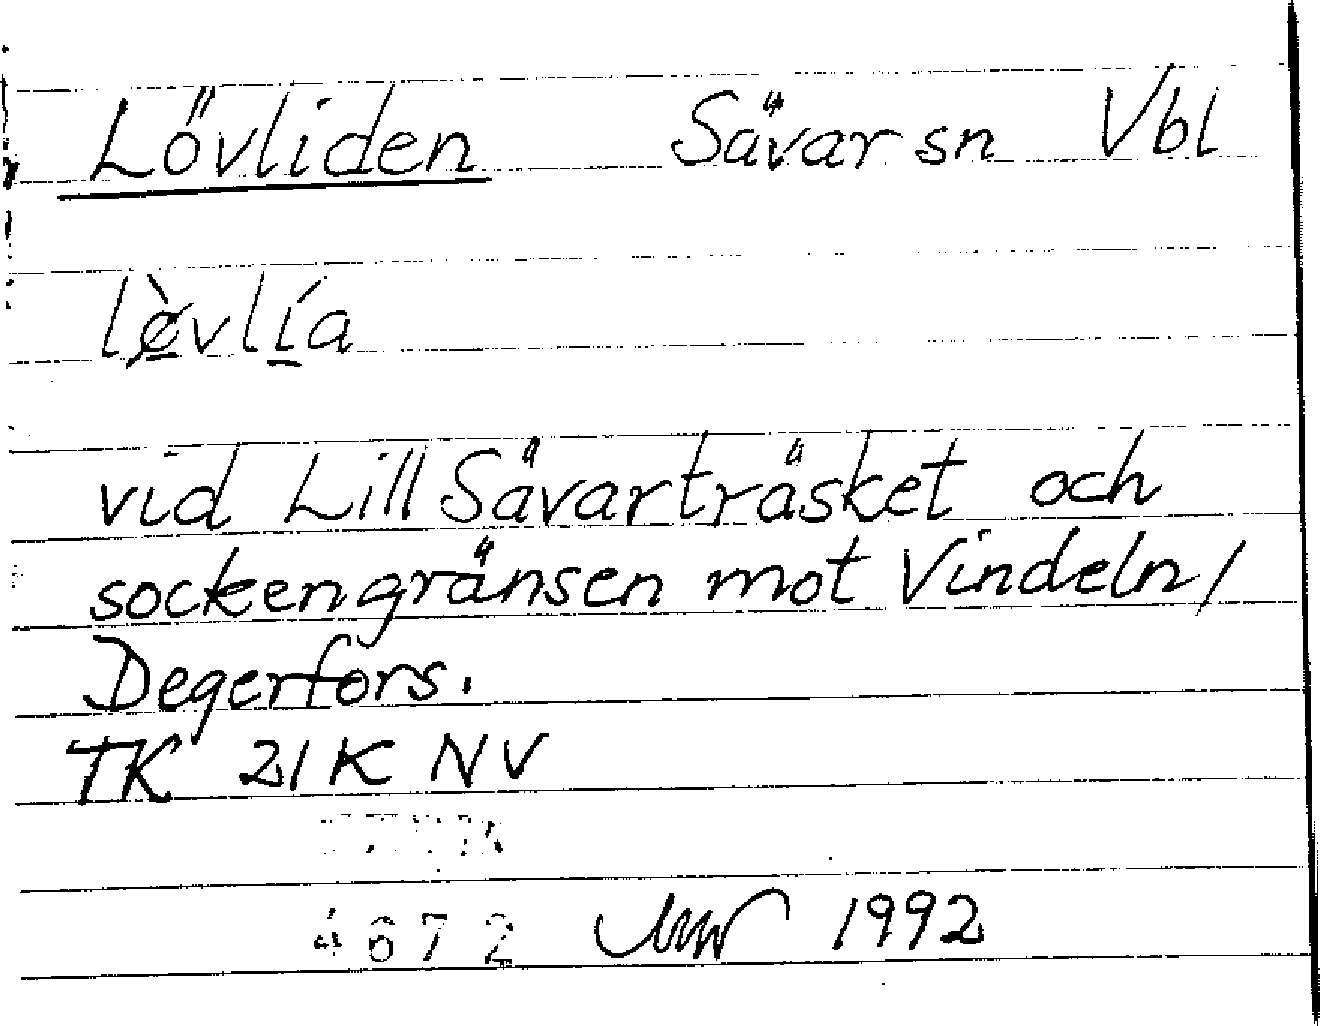 Lövliden Sävar sn Vbl
lø̱̀vlí̱a
vid Lill Sävarträsket och
sockengränsen mot Vindeln/
Degerfors.
TK 21K NV
4672 1992